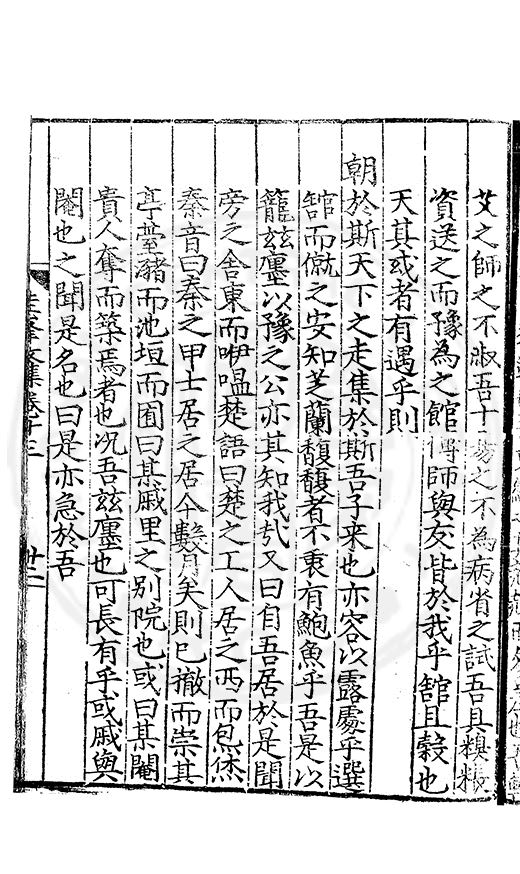 艾之師之不淑吾十一薦之不為病省之試吾具糗粻
資送之而豫為之館傅師與友皆於我乎館且穀也
天其或者有遇乎則
朝於斯天下之走集於斯吾子来也亦容以露處乎選
館而僦之安知芝蘭馥馥者不衷有鮑魚乎吾是以
籠茲廛以豫之公亦其知我㢤又曰自吾居於是聞
旁之舍東而咿嗢楚語曰楚之工人居之西而炰烋
秦音曰秦之甲士居之居今數月矣則已撤而崇其
亭臺瀦而池垣而囿曰某戚里之別院也或曰某閹
貴人奪而築焉者也况吾茲廛也可長有乎或戚與
閹也之聞是名也曰是亦急於吾
圭峯文集卷十三
廿二